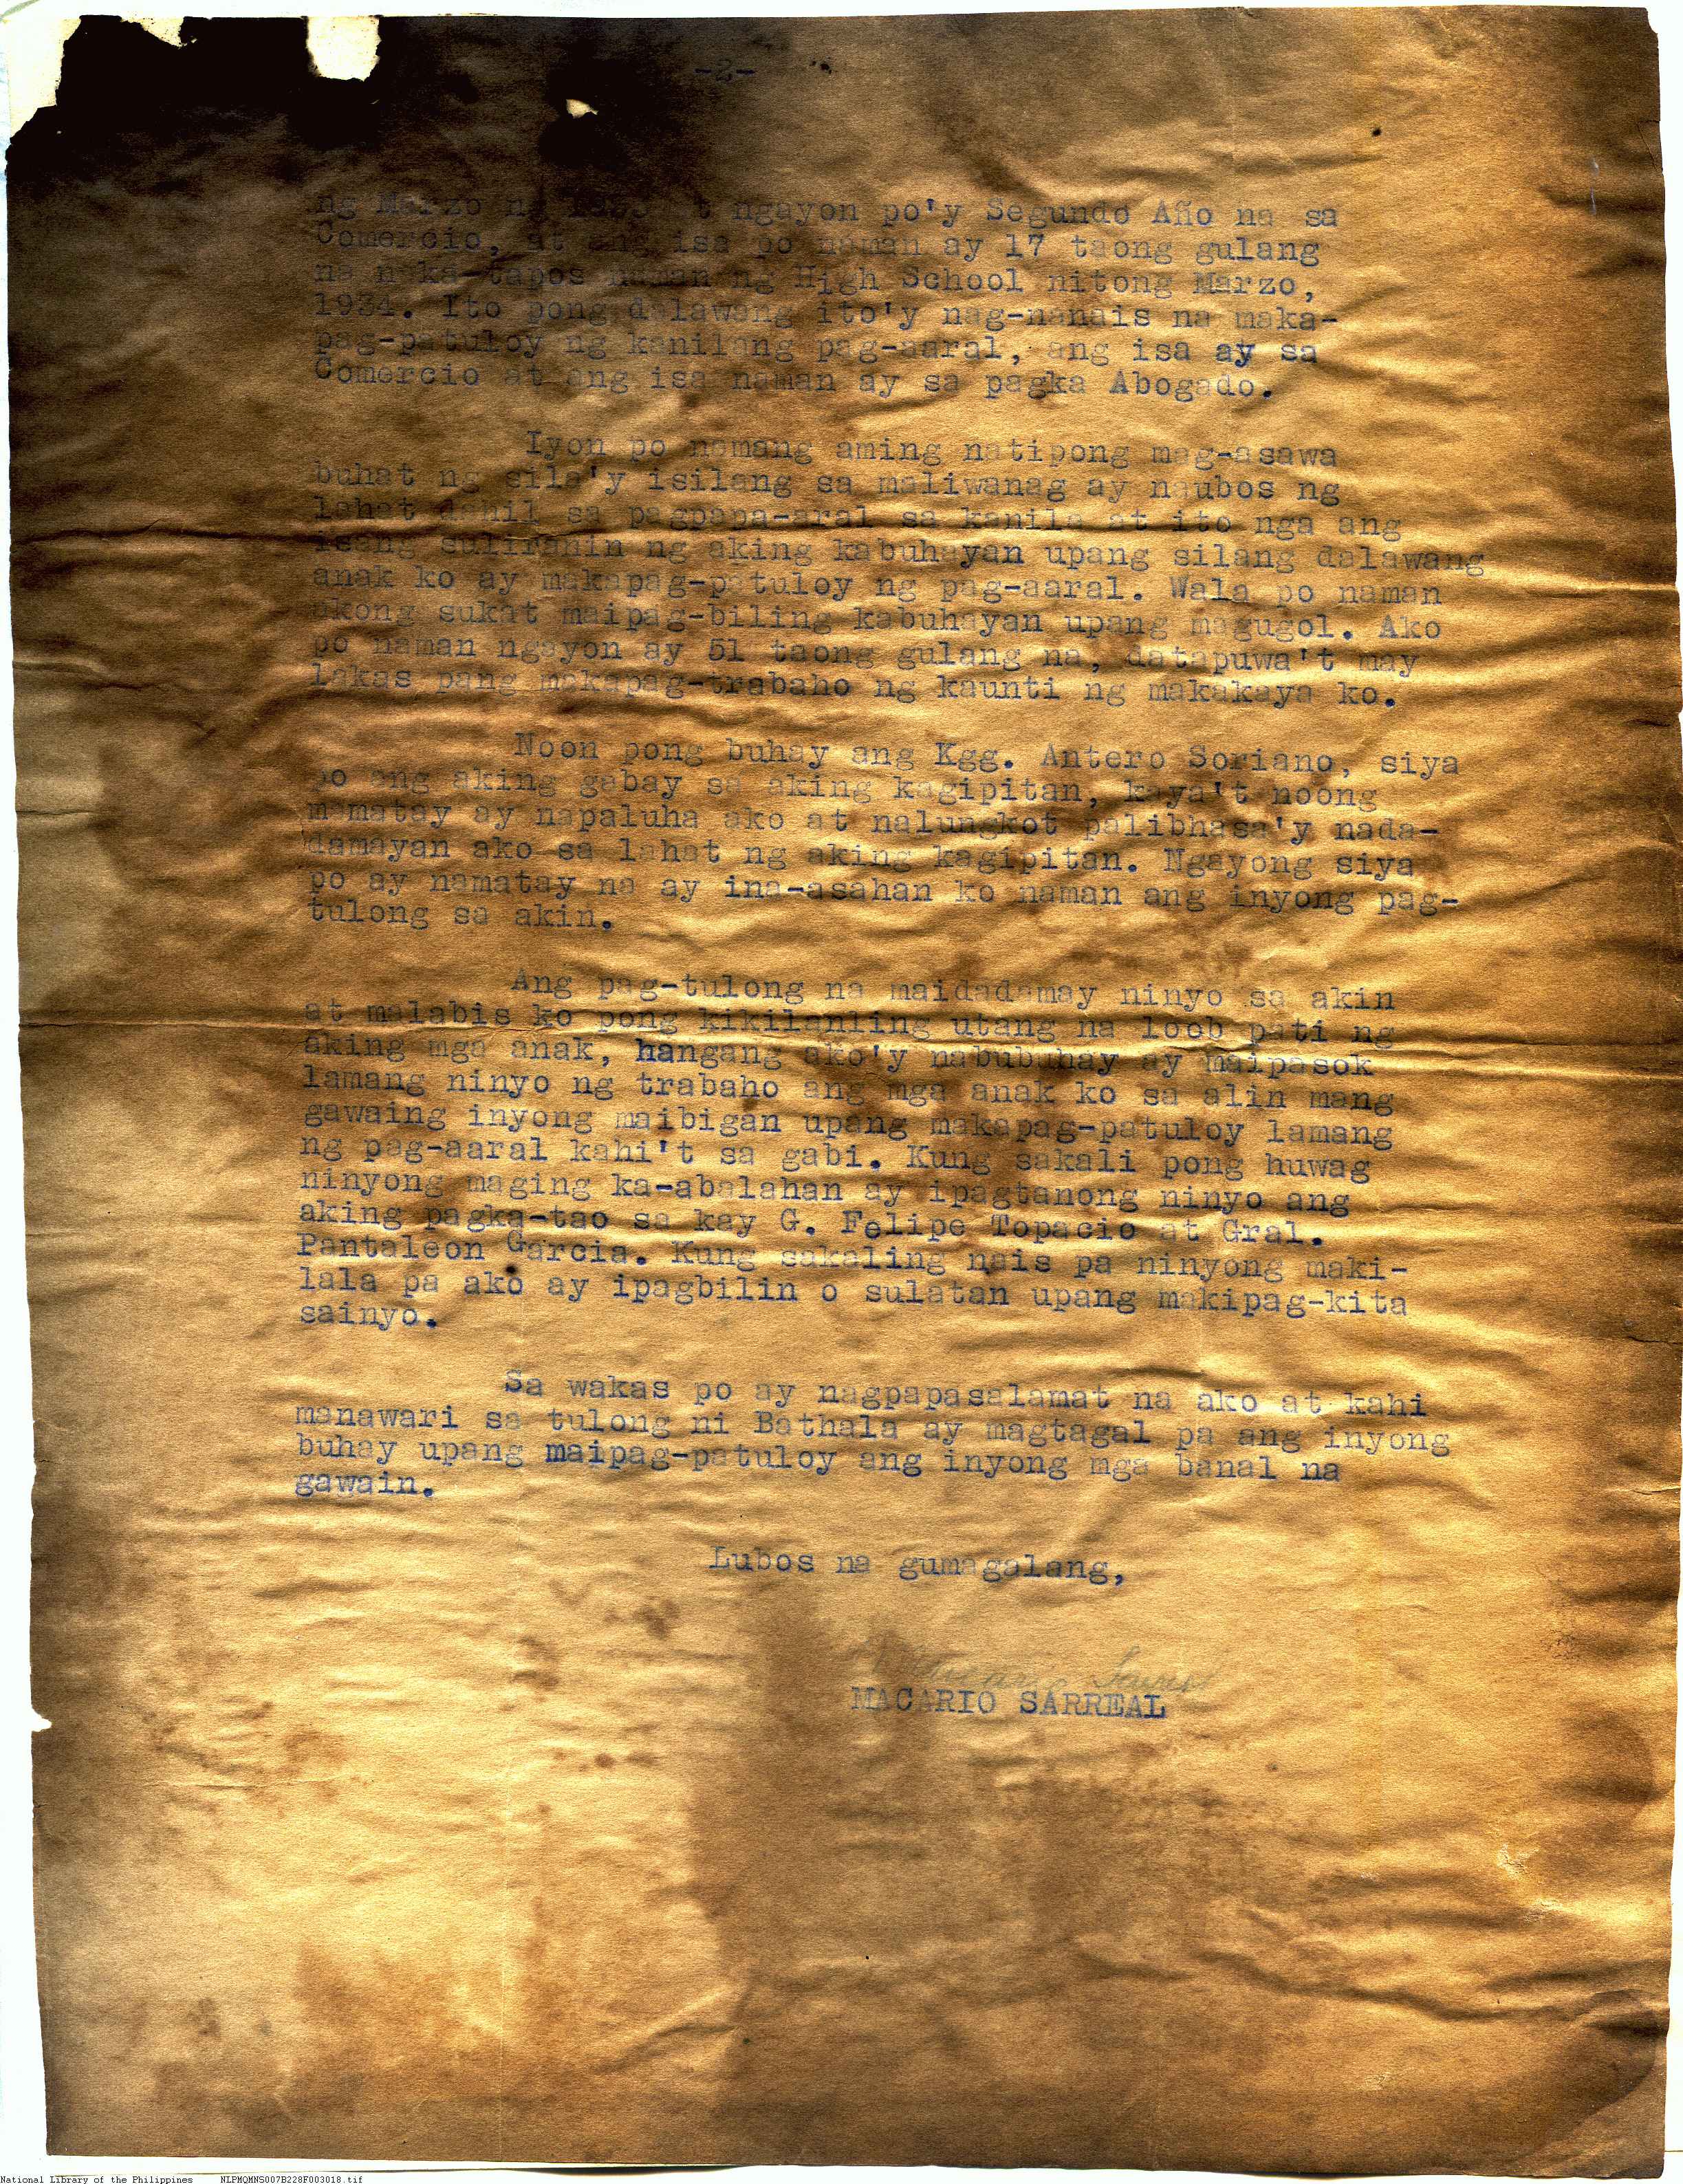 -2-
ng Marzo ng at ngayon po'y Segundo Año na sa
Comercio, at ang isa po naman ay 17 taong gulang
na naka-tapos naman ng High School nitong Marzo,
1934. Ito pong dalawang ito'y nag-nanais na maka-
pag-patuloy ng kanilang pag-aaral, ang isa ay sa
Comercio at ang isa naman ay sa pagka Abogado.
Iyon po namang aming natipong mag-asawa
buhat ng sila'y isilang sa maliwanag ay naubos ng
lahat dahil sa pagpapa-aral sa kanila at ito nga ang
isang suliranin ng aking kabuhayan upang silang dalawang
anak ko ay makapag-patuloy ng pag-aaral. Wala po naman
akong sukat maipag-biling kabuhayan upang magugol. Ako
po naman ngayon ay 51 taong gulang na, datapuwa't may
lakas pang makapag-trabaho ng kaunti ng makakaya ko.
Noon pong buhay ang Kgg. Antero Soriano, siya
po ang aking gabay sa aking kagipitan, kaya't noong
mamatay ay napaluha ako at nalungkot palibhasa'y nada-
damayan ako sa lahat ng aking kagipitan. Ngayong siya
po ay namatay na ay ina-asahan ko naman ang inyong pag-
tulong sa akin.
Ang pag-tulong na maidadamay ninyo sa akin
at malabis ko pong kikilanling utang na loob pati ng
aking mga anak, hangang ako'y nabubuhay ay maipasok
lamang ninyo ng trabaho ang mga anak ko sa alin mang
gawaing inyong maibigan upang makapag-patuloy lamang
ng pag-aaral kahi't sa gabi. Kung sakali pong huwag
ninyong maging ka-abalahan ay ipagtanong ninyo ang
aking pagka-tao sa kay G. Felipe Topacio at Gral.
Pantaleon Garcia. Kung sakaling nais pa ninyong maki-
lala pa ako ay ipagbilin o sulatan upang makipag-kita
sainyo.
Sa wakas po ay nagpapasalamat na ako at kahi
manawari sa tulong ni Bathala ay magtagal pa ang inyong
buhay upang maipag-patuloy ang inyong mga banal na
gawain.
Lubos na gumagalang,
Macario Sarreal
MACARIO SARREAL
National Library of the Philippines NLPMQMNS007B228F003018.tif